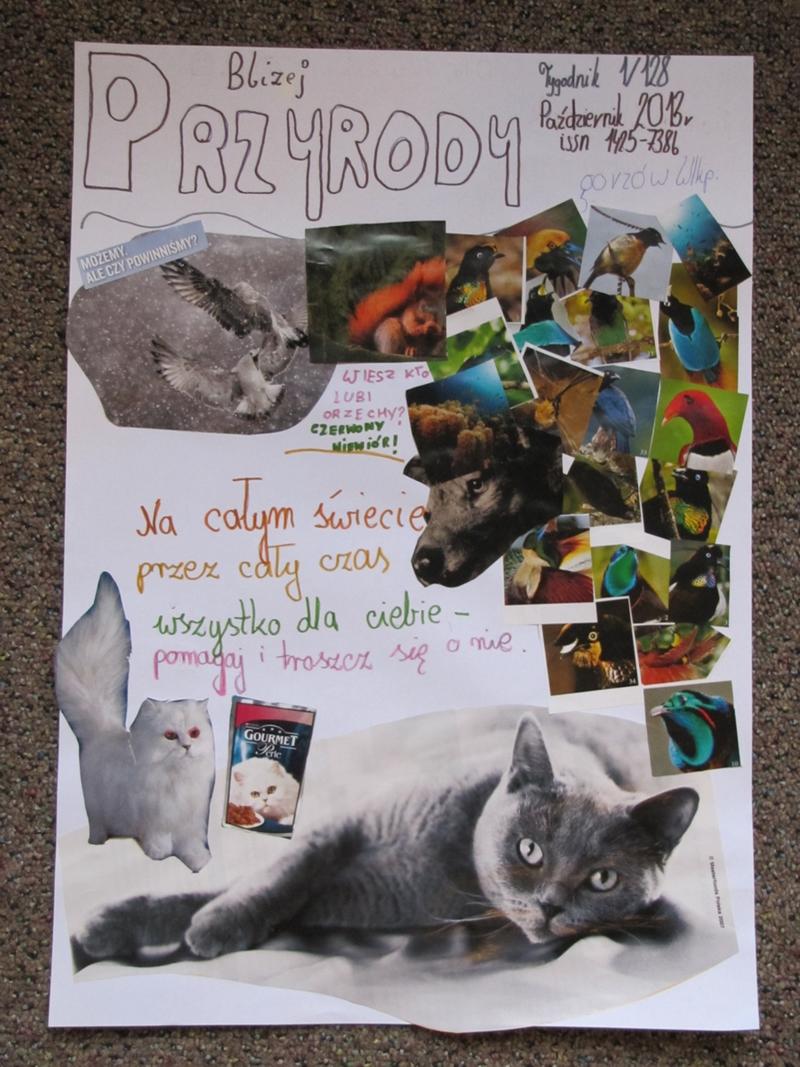 Bliżej
PRZYRODY
Tygodnik 1/128
Październik 2013r
issn 1425-7386
gorzów Wlkp.
MOŻEMY,
ALE CZY POWINNIŚMY?
WIESZ KTO
LUBI
ORZECHY?
CZERWONY
NIEWIÓR!
Na całym świecie
przez cały czas
wszystko dla ciebie -
pomagaj i troszcz się o nie.
GOURMET
Perle
© Masterfoods Polska 2007